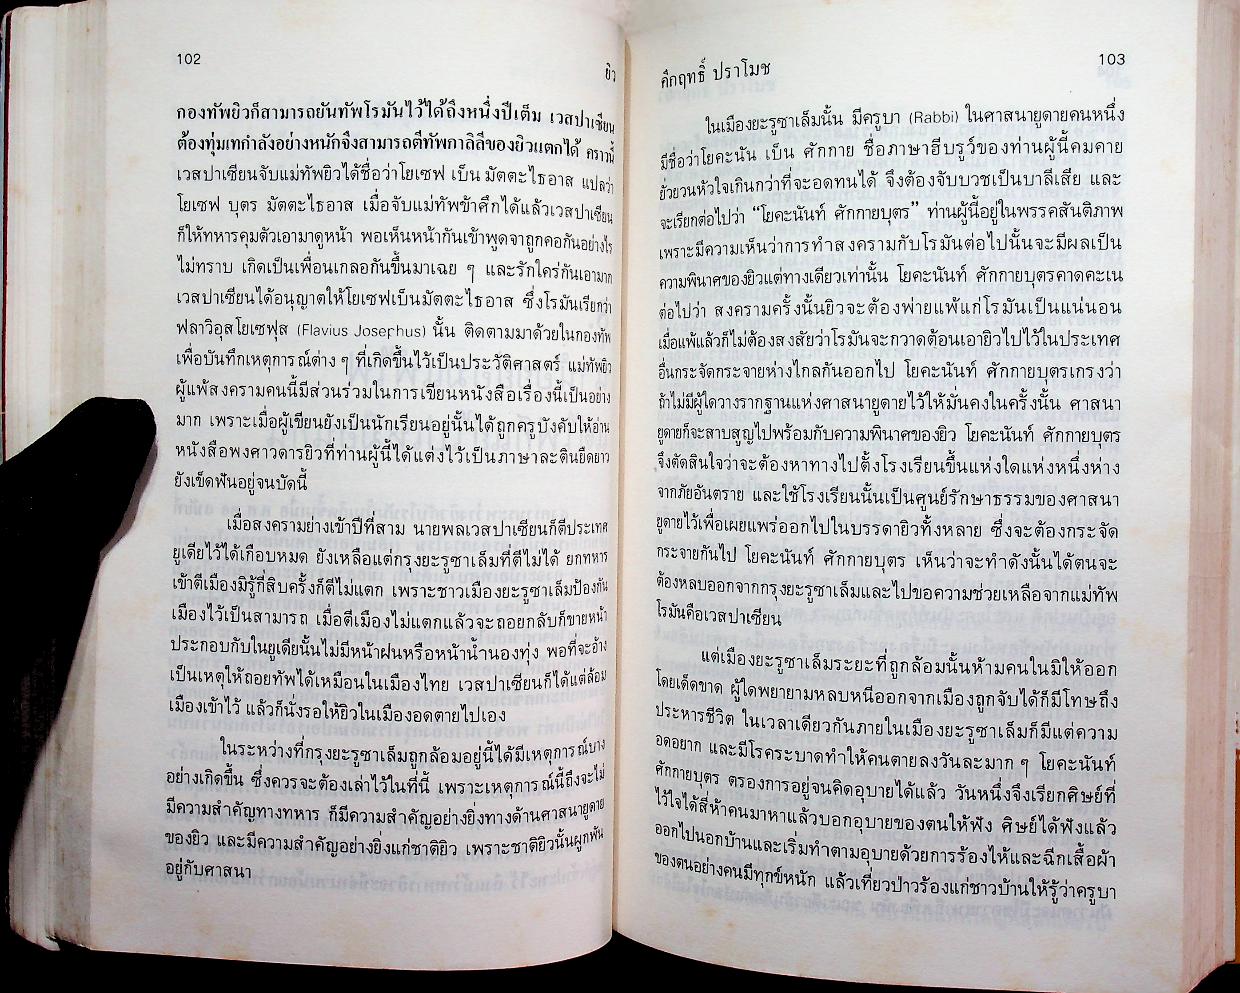 102
ยิว
กองทัพยิวก็สามารถยันทัพโรมันไว้ได้ถึงหนึ่งปีเต็ม เวสปาเซียน
ต้องทุ่มเทกำลังอย่างหนักจึงสามารถตีทัพกาลิลีของยิวแตกได้ คราวนี้
เวสปาเซียนจับแม่ทัพยิวได้ชื่อว่าโยเซฟ เบ็น มัตตะไธอาส แปลว่า
โยเซฟ บุตร มัตตะไธอาส เมื่อจับแม่ทัพข้าศึกได้แล้วเวสปาเซียน
ก็ให้ทหารคุมตัวเอามาดูหน้า พอเห็นหน้ากันเข้าพูดจาถูกคอกันอย่างไร
ไม่ทราบ เกิดเป็นเพื่อนเกลอกันขึ้นมาเฉย ๆ และรักใคร่กันเอามาก
เวสปาเซียนได้อนุญาตให้โยเซฟเบ็นมัตตะไธอาส ซึ่งโรมันเรียกว่า
ฟลาวิอุสโยเซฟุส (Flavius Josephus) นั้น ติดตามมาด้วยในกองทัพ
เพื่อบันทึกเหตุการณ์ต่าง ๆ ที่เกิดขึ้นไว้เป็นประวัติศาสตร์ แม่ทัพยิว
ผู้แพ้สงครามคนนี้มีส่วนร่วมในการเขียนหนังสือเรื่องนี้เป็นอย่าง
มาก เพราะเมื่อผู้เขียนยังเป็นนักเรียนอยู่นั้นได้ถูกครูบังคับให้อ่าน
หนังสือพงศาวดารยิวที่ท่านผู้นี้ได้แต่งไว้เป็นภาษาละตินยืดยาว
ยังเข็ดฟันอยู่จนบัดนี้
เมื่อสงครามย่างเข้าปีที่สาม นายพลเวสปาเซียนก็ตีประเทศ
ยูเดียไว้ได้เกือบหมด ยังเหลือแต่กรุงยะรูซาเล็มที่ตีไม่ได้ ยกทหาร
เข้าตีเมืองมิรู้กี่สิบครั้งก็ตีไม่แตก เพราะชาวเมืองยะรูซาเล็มป้องกัน
เมืองไว้เป็นสามารถ เมื่อตีเมืองไม่แตกแล้วจะถอยกลับก็ขายหน้า
ประกอบกับในยูเดียนั้นไม่มีหน้าฝนหรือหน้าน้ำนองทุ่ง พอที่จะอ้าง
เป็นเหตุให้ถอยทัพได้เหมือนในเมืองไทย เวสปาเซียนก็ได้แต่ล้อม
เมืองเข้าไว้ แล้วก็นั่งรอให้ยิวในเมืองอดตายไปเอง
ในระหว่างที่กรุงยะรูซาเล็มถูกล้อมอยู่นี้ได้มีเหตุการณ์บาง
อย่างเกิดขึ้น ซึ่งควรจะต้องเล่าไว้ในที่นี้ เพราะเหตุการณ์นี้ถึงจะไม่
มีความสำคัญทางทหาร ก็มีความสำคัญอย่างยิ่งทางด้านศาสนายูดาย
ของยิว และมีความสำคัญอย่างยิ่งแก่ชาติยิว เพราะชาติยิวนั้นผูกพัน
อยู่กับศาสนา
คึกฤทธิ์ ปราโมช
103
ในเมืองยะรูซาเล็มนั้น มีครูบา (Rabbi) ในศาสนายูดายคนหนึ่ง
มีชื่อว่าโยคะนัน เบ็น ศักกาย ชื่อภาษาฮีบรูว์ของท่านผู้นี้คมคาย
ยั่วยวนหัวใจเกินกว่าที่จะอดทนได้ จึงต้องจับบวชเป็นบาลีเสีย และ
จะเรียกต่อไปว่า “โยคะนันท์ ศักกายบุตร” ท่านผู้นี้อยู่ในพรรคสันติภาพ
เพราะมีความเห็นว่าการทำสงครามกับโรมันต่อไปนั้นจะมีผลเป็น
ความพินาศของยิวแต่ทางเดียวเท่านั้น โยคะนันท์ ศักกายบุตรคาดคะเน
ต่อไปว่า สงครามครั้งนั้นยิวจะต้องพ่ายแพ้แก่โรมันเป็นแน่นอน
เมื่อแพ้แล้วก็ไม่ต้องสงสัยว่าโรมันจะกวาดต้อนเอายิวไปไว้ในประเทศ
อื่นกระจัดกระจายห่างไกลกันออกไป โยคะนันท์ ศักกายบุตรเกรงว่า
ถ้าไม่มีผู้ใดวางรากฐานแห่งศาสนายูดายไว้ให้มั่นคงในครั้งนั้น ศาสนา
ยูดายก็จะสาบสูญไปพร้อมกับความพินาศของยิว โยคะนันท์ ศักกายบุตร
จึงตัดสินใจว่าจะต้องหาทางไปตั้งโรงเรียนขึ้นแห่งใดแห่งหนึ่งห่าง
จากภัยอันตราย และใช้โรงเรียนนั้นเป็นศูนย์รักษาธรรมของศาสนา
ยูดายไว้เพื่อเผยแพร่ออกไปในบรรดายิวทั้งหลาย ซึ่งจะต้องกระจัด
กระจายกันไป โยคะนันท์ ศักกายบุตร เห็นว่าจะทำดังนั้นได้ตนจะ
ต้องหลบออกจากกรุงยะรูซาเล็มและไปขอความช่วยเหลือจากแม่ทัพ
โรมันคือเวสปาเซียน
แต่เมืองยะรูซาเล็มระยะที่ถูกล้อมนั้นห้ามคนในมิให้ออก
โดยเด็ดขาด ผู้ใดพยายามหลบหนีออกจากเมืองถูกจับได้ก็มีโทษถึง
ประหารชีวิต ในเวลาเดียวกันภายในเมืองยะรูซาเล็มก็มีแต่ความ
อดอยาก และมีโรคระบาดทำให้คนตายลงวันละมาก ๆ โยคะนันท์
ศักกายบุตร ตรองการอยู่จนคิดอุบายได้แล้ว วันหนึ่งจึงเรียกศิษย์ที่
ไว้ใจได้สี่ห้าคนมาหาแล้วบอกอุบายของตนให้ฟัง ศิษย์ได้ฟังแล้ว
ออกไปนอกบ้านและเริ่มทำตามอุบายด้วยการร้องไห้และฉีกเสื้อผ้า
ของตนอย่างคนมีทุกข์หนัก แล้วเที่ยวป่าวร้องแก่ชาวบ้านให้รู้ว่าครูบา